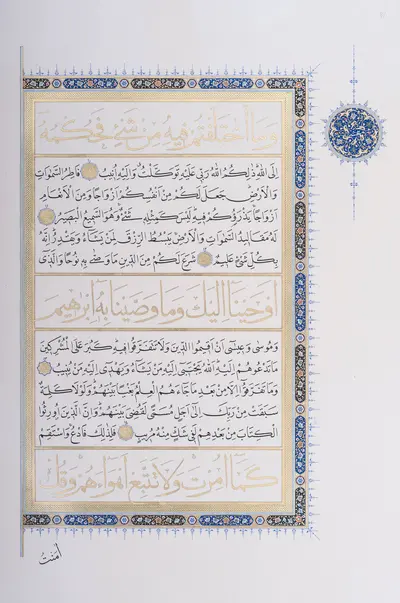 وما اختلفتم فيه من شيء فحكمه
إلى الله ذلكم الله ربي عليه توكلت وإليه أنيب فاطر السموات
والأرض جعل لكم من أنفسكم أزواجا ومن الأنعام
أزواجا يذرؤكم فيه ليس كمثله شيء وهو السميع البصير
له مقاليد السموات والأرض يبسط الرزق لمن يشاء ويقدر إنه
بكل شيء عليم شرع لكم من الدين ما وصى به نوحا والذي
أوحينا إليك وما وصينا به إبرهيم
وموسى وعيسى أن أقيموا الدين ولا تتفرقوا فيه كبر على المشركين
ما تدعوهم إليه الله يجتبي إليه من يشاء ويهدي إليه من ينيب
وما تفرقوا إلا من بعد ما جاءهم العلم بغيا بينهم ولولا كلمة
سبقت من ربك إلى أجل مسمى لقضي بينهم وإن الذين أورثوا
الكتاب من بعدهم لفي شك منه مريب فلذلك فادع واستقم
كما أمرت ولا تتبع أهواءهم وقل
آمنت